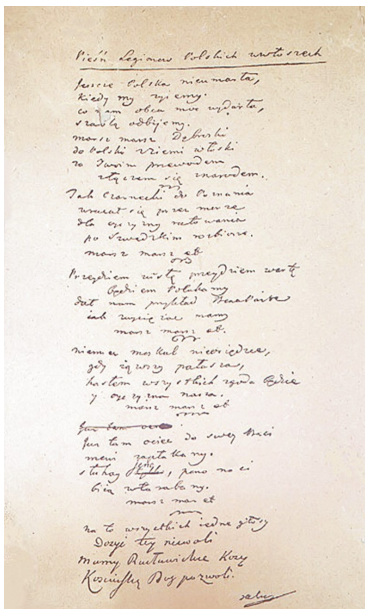 Pieśń Legionów Polskich we włoszech
Jeszcze Polska nieumarła,
kiedy my żyjemy.
co nam obca moc wydarła,
szablą odbijemy.
marsz marsz Dąbroski
do Polski z ziemi włoski
za Twoim przewodem
złączem się znarodem.
Jak Czarnecki do Poznania
wracał się przez morze
dla oyczyzny ratowania
po Szwedzkim rozbiorze.
marsz marsz etc
Przejdziem wisłę przejdziem wartę
będziem Polakamy
dał nam przykład Bonaparte
jak zwyciężać mamy
marsz marsz etc.
niemiec moskal nieosiędzie,
gdy jąwszy pałasza,
hasłem wszystkich zgoda będzie
y oyczyzna nasza.
marsz marsz etc
Już tam ociec
Już tam ociec do swey Basi
mówi zapłakany.
słuchay, pono nasi
biją wtarabany.
marsz marsz etc
na to wszystkich iedne głosy
Dosyć tey niewoli
mamy Racławickie Kosy
Kosciuszkę Bóg pozwoli.